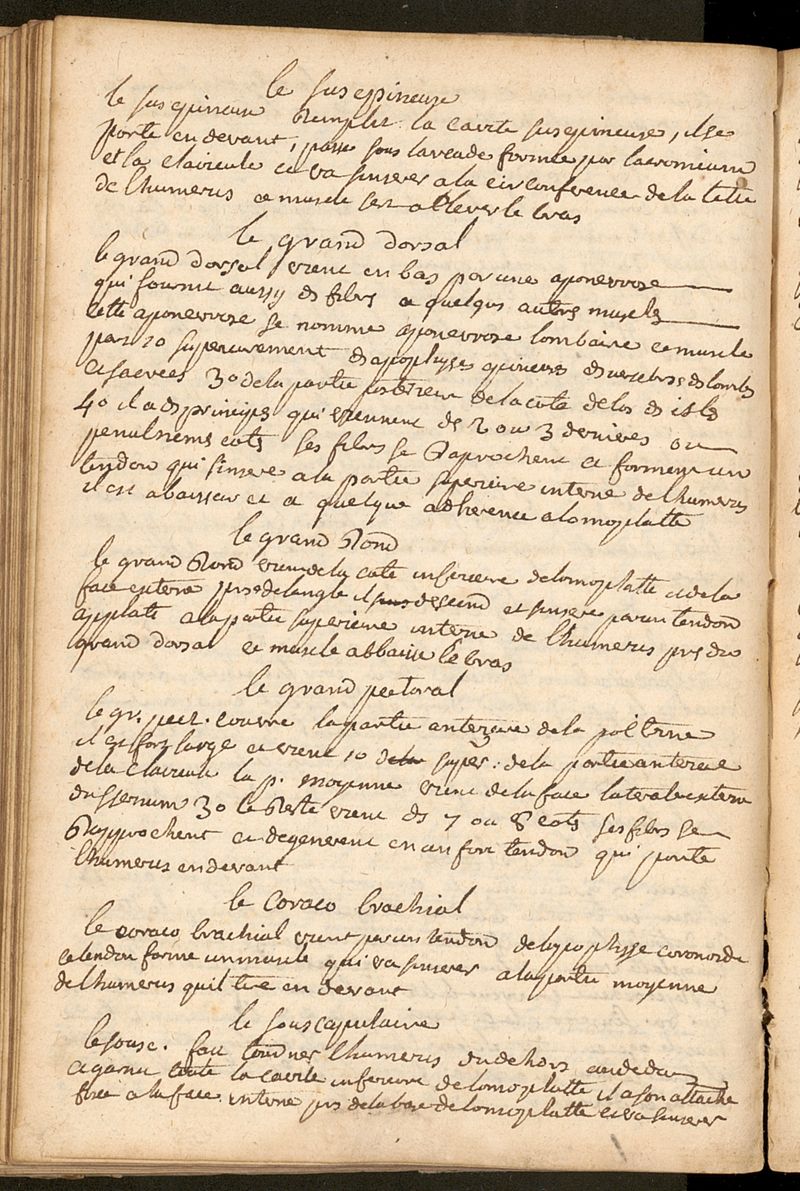 le suspineuse
le suspineuse Remplit la cavite suspineuse, il se
porte en devant, passe sous larcade formée par lacromium
et la clavicule et va sinserer a la circonference de la tette
de lhumerus ce muscle sert a Elever le bras
le grand dorsal
le grand dorsal vient en bas par une aponevrose
qui fournit aussy des fibres a quelqus autres muscles
cette aponevrose se nomme aponevrose lombaire ce muscle
part 1o superieurement des apophyses epineuses des vertebres des lombes
et sacrées 3o de la partie posterieure de la cote de los des isles
4o il a des principes qui viennent des 2 ou 3 dernieres ou
penultiemes cotes ses fibres se Raprochent et forment un
tendon qui sinsere a la partie superieure interne de lhumerus
il est abaisseur et a quelque adherence a lomoplatte
le grand Rond
le grand Rond vient de la cote inferieure de lomoplatte et de la
face externe pres de langle il descend et sinsere par un tendon
applati a la partie superieure interne de lhumerus pres du
grand dorsal ce muscle abbaisse le bras
le grand pectoral
le gr. pect. couvre la partie anterieure de la poitrine
il est fort large et vient 1o de la super: de la partie anterieure
de la clavicule la p. moyenne vient de la face laterale externe
du sternum 3o le Reste vient des 7 ou 8 cotes ses fibres se
Rapprochent et degenerent en un fort tendon qui porte
lhumerus en devant
le coraco brachial
le coraco brachial vient par un tendon de lapophysse coronoide
ce tendon forme un muscle qui va sinserer a la partie moyenne
de lhumerus quil tire en devant
le souscapulaire
le sousc. fait tourner lhumerus du dehors au dedans
et garnit toute la cavite inferieure de lomoplatte il a son attache
fixe a la face interne pres de la base de lomoplatte et va sinserer